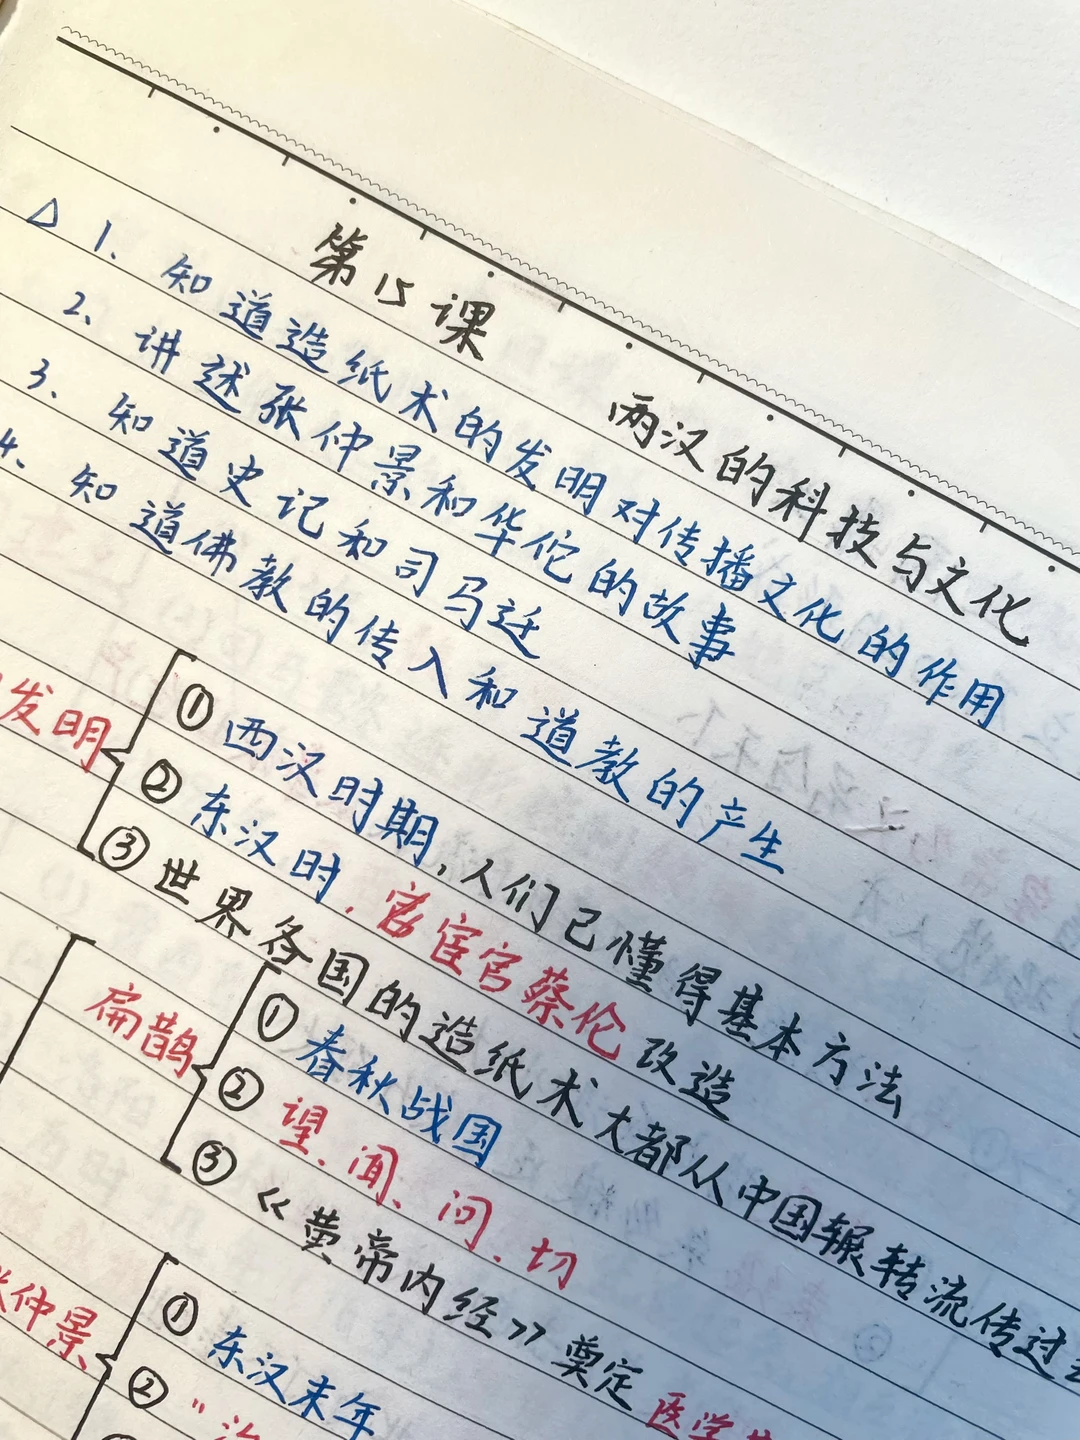 第15课 两汉的科技与文化
△ 1、知道造纸术的发明对传播文化的作用
2、讲述张仲景和华佗的故事
3、知道史记和司马迁
4、知道佛教的传入和道教的产生
发明
① 西汉时期,人们已懂得基本方法
② 东汉时,宦官蔡伦改造
③ 世界各国的造纸术大都从中国辗转流传过
扁鹊
① 春秋战国
② 望、闻、问、切
③ 《黄帝内经》奠定医学
仲景
① 东汉末年
② "治